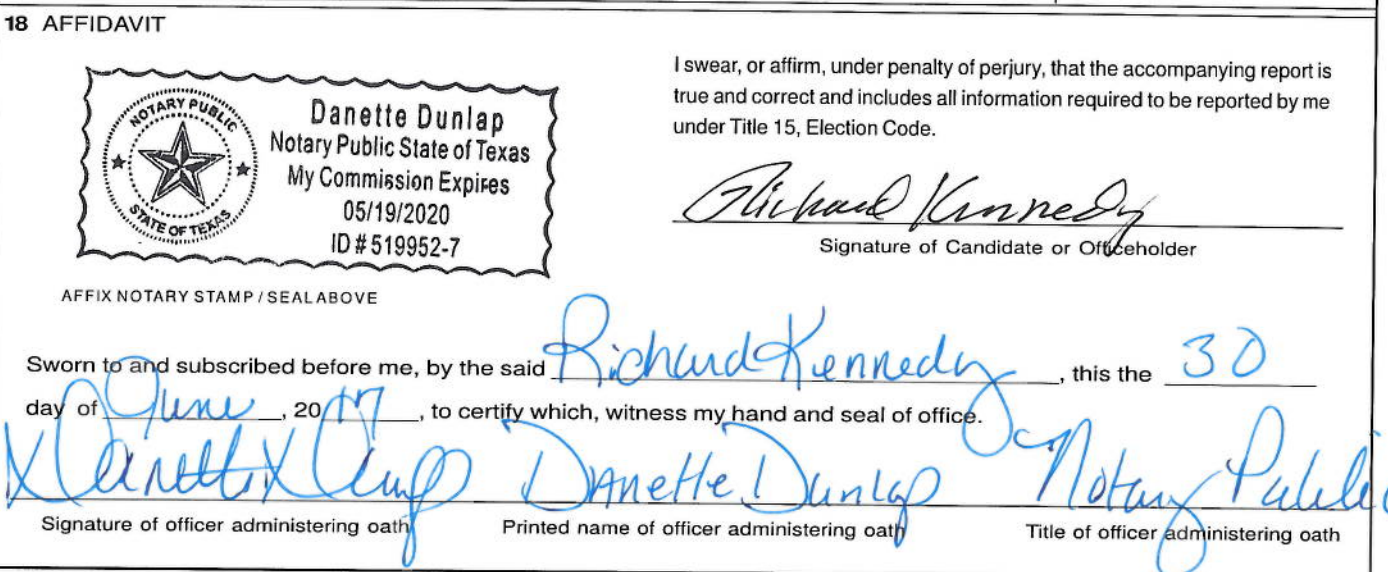 18 AFFIDAVIT
NOTARY PUBLIC
STATE OF TEXAS
Danette Dunlap
Notary Public State of Texas
My Commission Expires
05/19/2020
ID # 519952-7
AFFIX NOTARY STAMP / SEAL ABOVE
I swear, or affirm, under penalty of perjury, that the accompanying report is
true and correct and includes all information required to be reported by me
under Title 15, Election Code.
Richard Kennedy
Signature of Candidate or Officeholder
Sworn to and subscribed before me, by the said Richard Kennedy, this the 30
day of June, 20 17, to certify which, witness my hand and seal of office.
Danette Dunlap Danette Dunlap Notary Public
Signature of officer administering oath Printed name of officer administering oath Title of officer administering oath